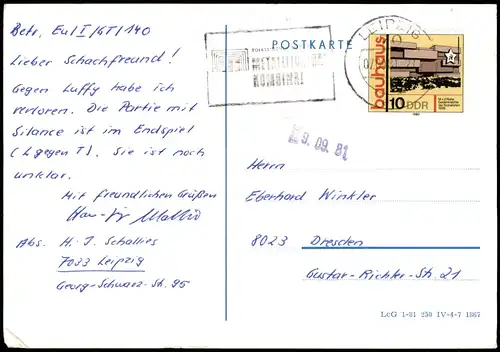 Betr. Eu/I/GT/140
Lieber Schachfreund!
Gegen Luffy habe ich
verloren. Die Partie mit
Silance ist im Endspiel
(L gegen T). Sie ist noch
unklar.
Mit freundlichen Grüßen
Abs. H.-J. Schallies
7033 Leipzig
Georg-Schwarz-Str. 95
POSTKARTE
METALLLEICHTBAU
KOMBINAT
LEIPZIG
bauhaus
10 DDR
9. 09. 81
Herrn
Eberhard Winkler
8023 Dresden
Gustav-Richter-Str. 21
LcG 1-81 250 IV-4-7 1867